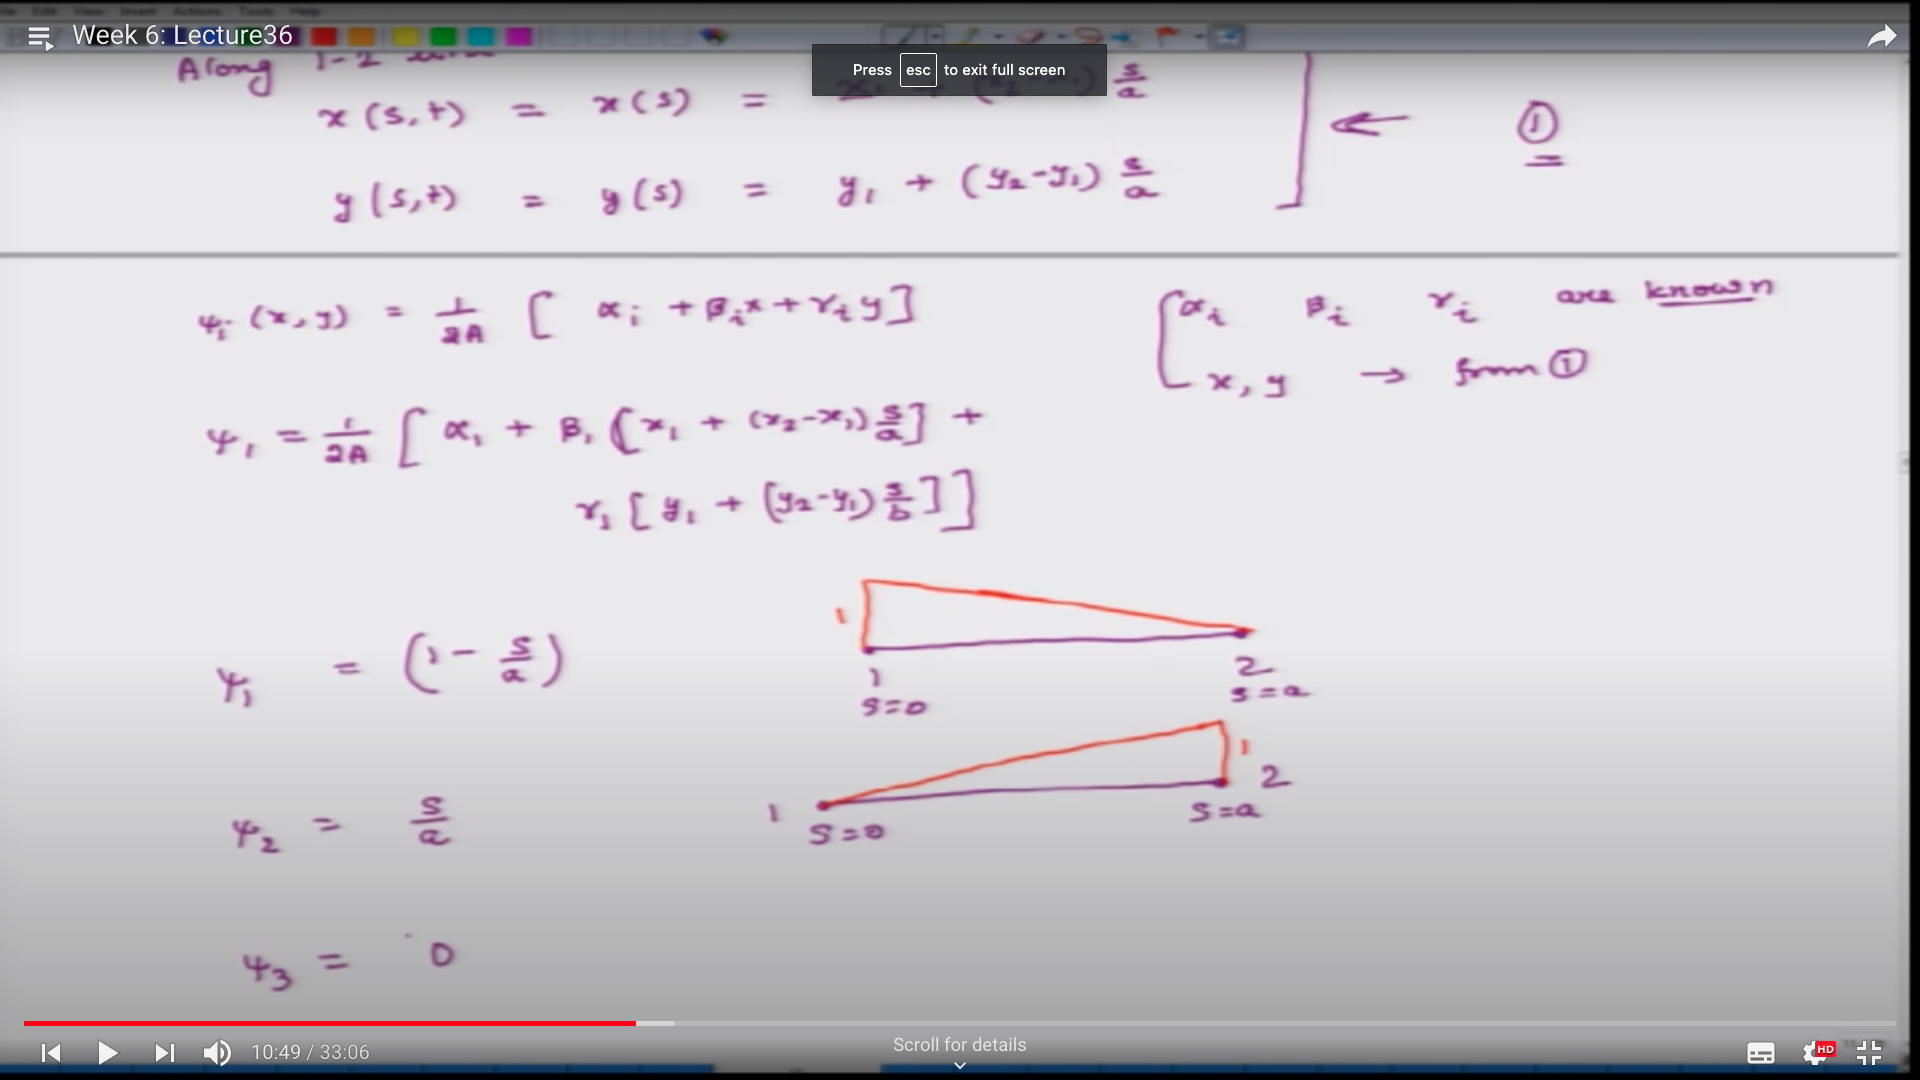 File Edit View Insert Actions Tools Help
Week 6: Lecture36
Press esc to exit full screen
Along 1-2
x (s,t) = x(s) = s/a
y (s,t) = y(s) = y₁ + (y₂-y₁) s/a
①
ψᵢ (x,y) = 1/2A [ αᵢ + βᵢx + γᵢ y ]
αᵢ βᵢ γᵢ are known
x, y → from ①
ψ₁ = 1/2A [ α₁ + β₁ [x₁ + (x₂-x₁) s/a] +
γ₁ [ y₁ + (y₂-y₁) s/b ] ]
1
ψ₁ = (1 - s/a)
1 2
s=0 s=a
1
1 2
ψ₂ = s/a
s=0 s=a
ψ₃ = 0
10:49 / 33:06
Scroll for details
HD